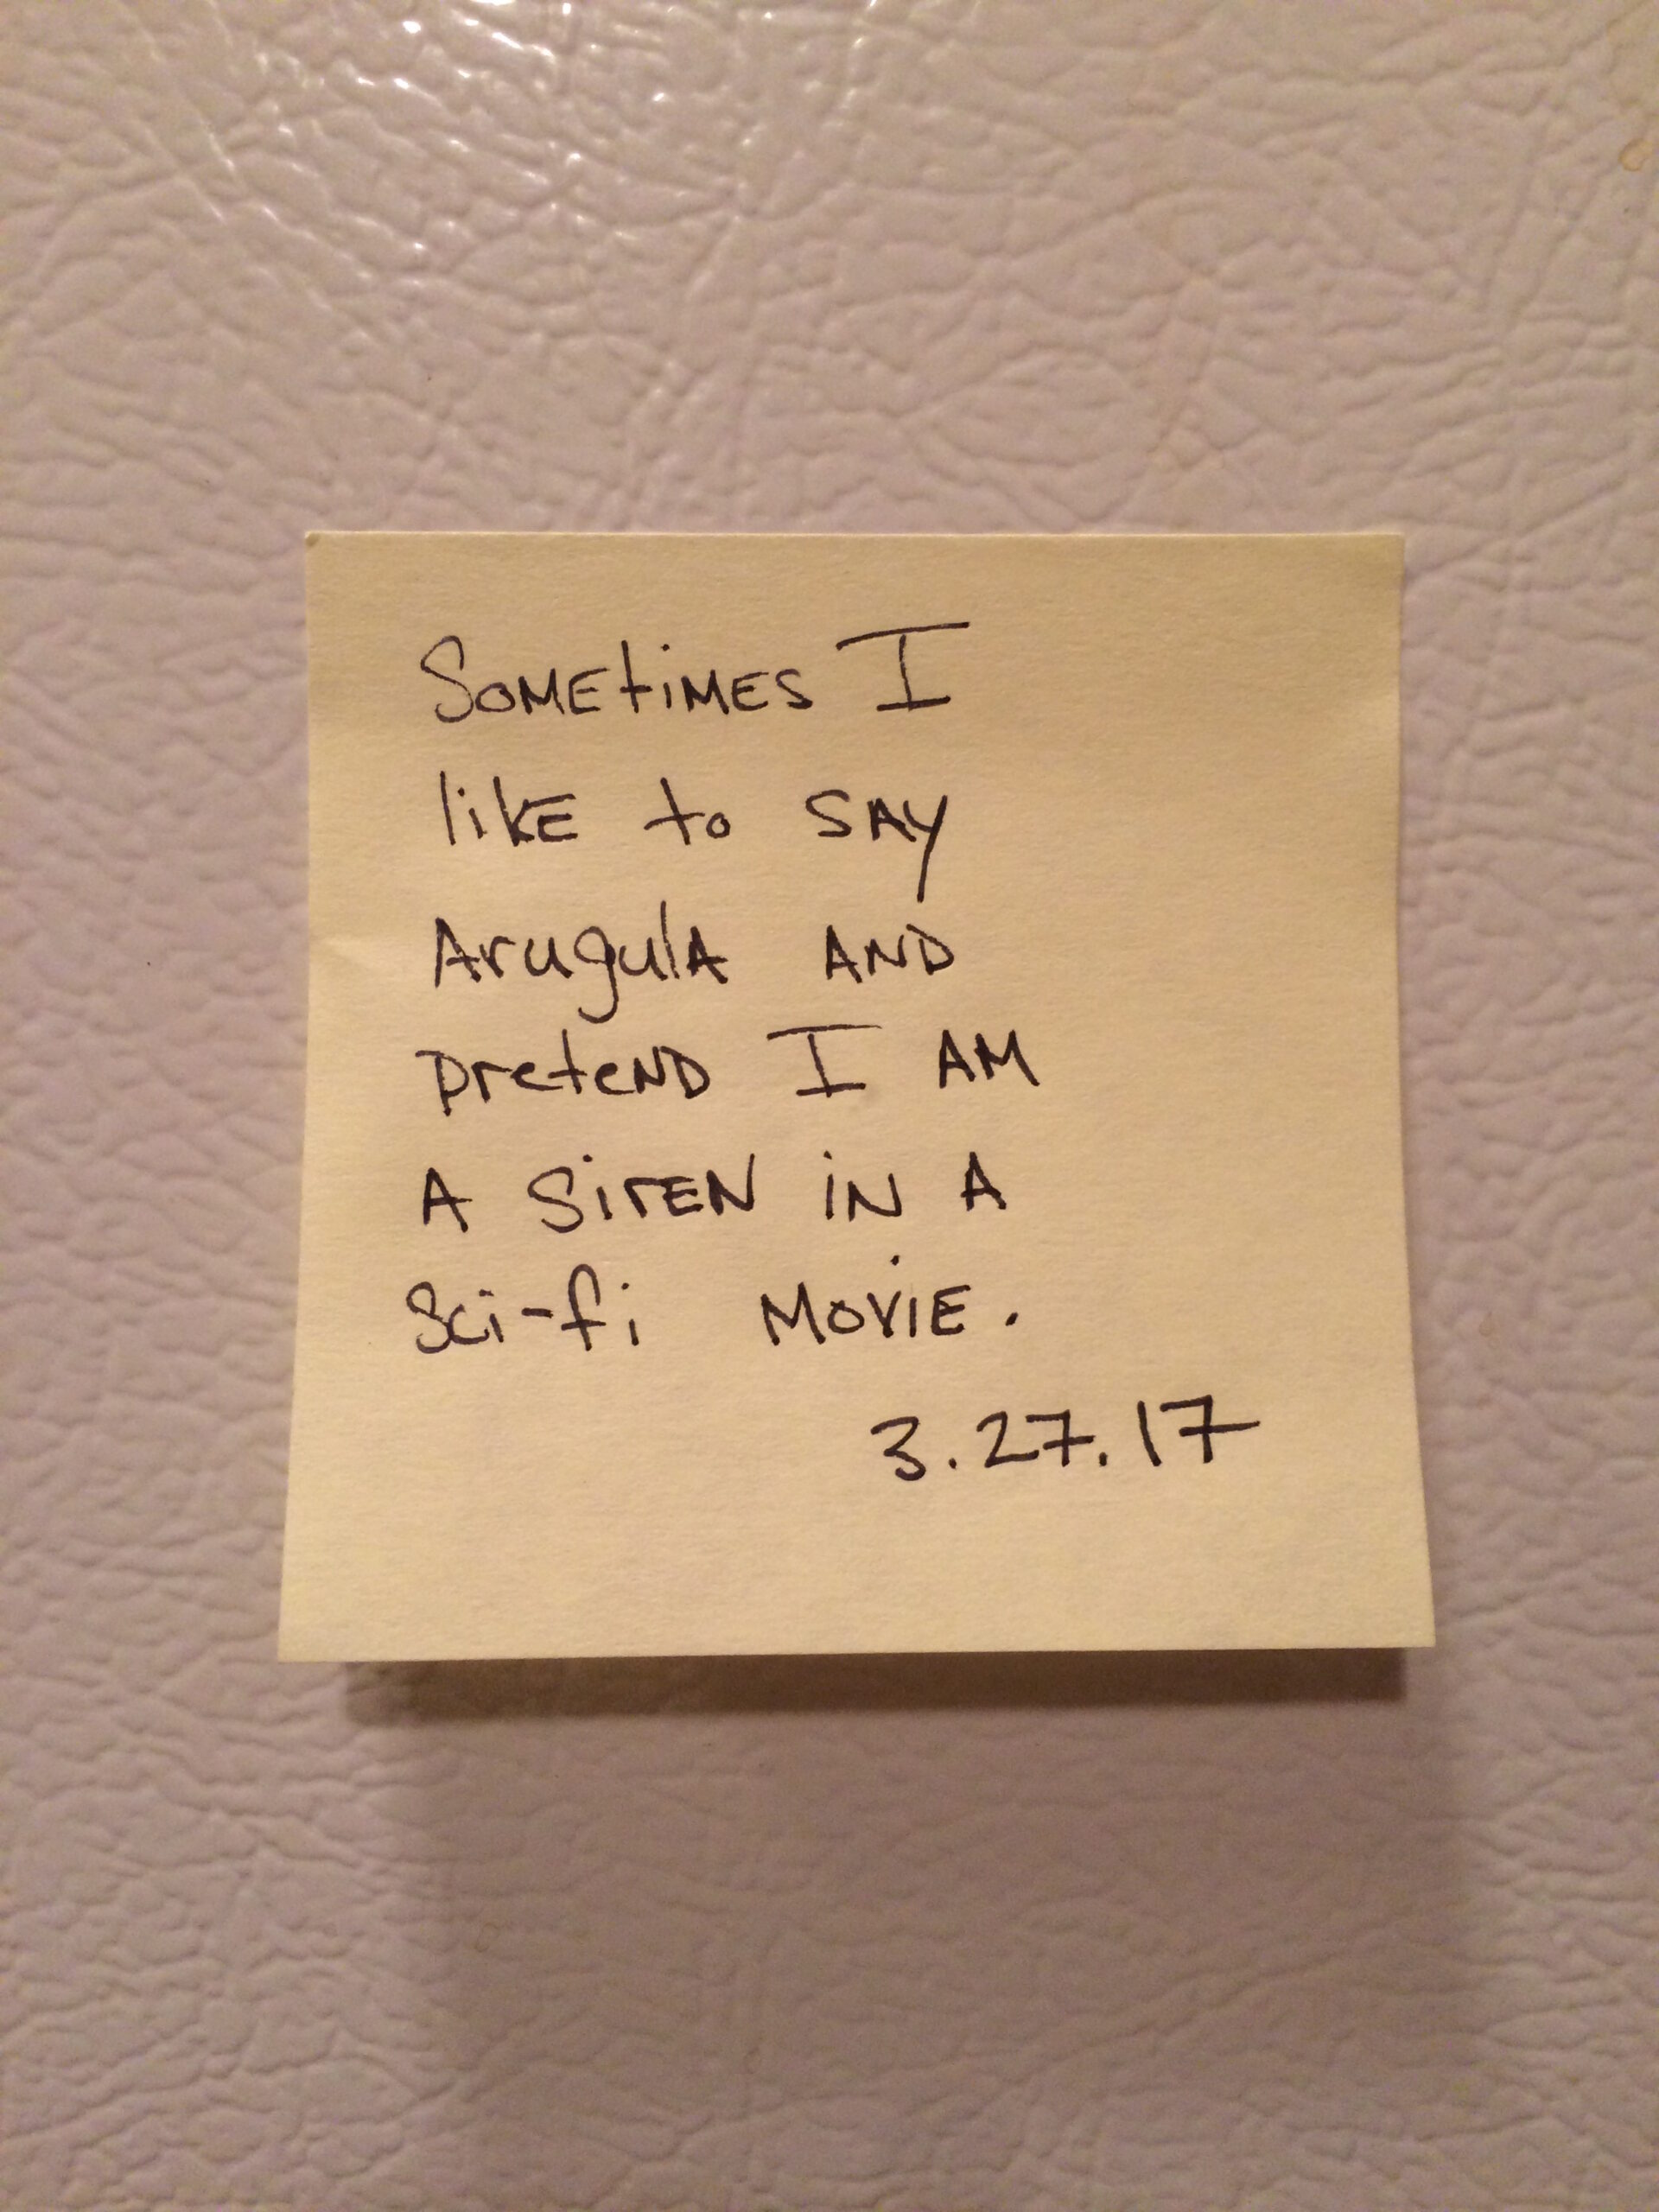 Sometimes I
like to say
Arugula and
pretend I am
a siren in a
Sci-fi movie.
3.27.17